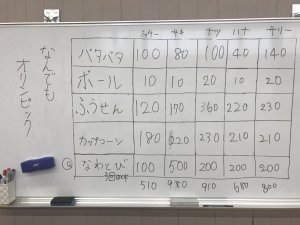 なんでも
オリンピック
サキ ナツ ハナ サリー
バタバタ 100 80 100 40 140
ボール 10 10 20 10 20
ふうせん 120 170 360 220 230
カップコーン 180 220 230 210 210
なわとび 100 500 200 200 200
3回
510 980 910 680 800